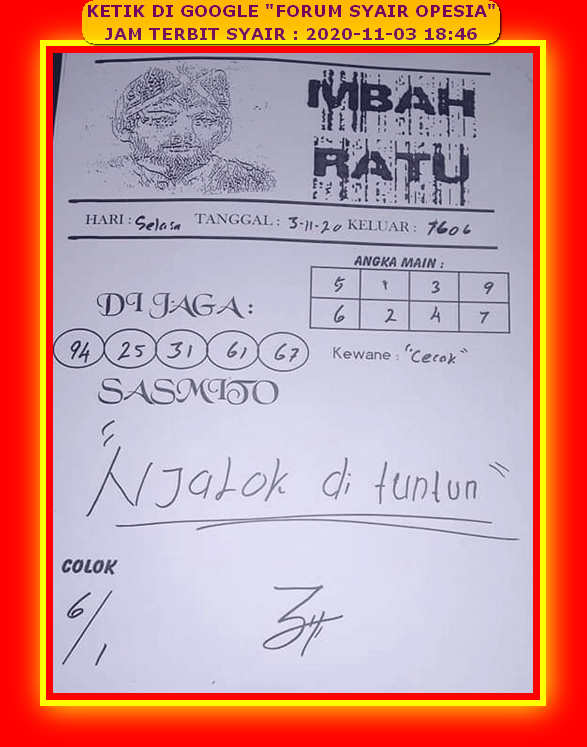 KETIK DI GOOGLE "FORUM SYAIR OPESIA"
JAM TERBIT SYAIR : 2020-11-03 18:46
MBAH
RATU
HARI : Selasa TANGGAL : 3-11-20 KELUAR : 7606
ANGKA MAIN :
5 1 3 9
6 2 4 7
DI JAGA :
94 25 31 61 67
Kewane : "Cecak"
SASMITO
"NJALOK di tuntun"
COLOK
6/1